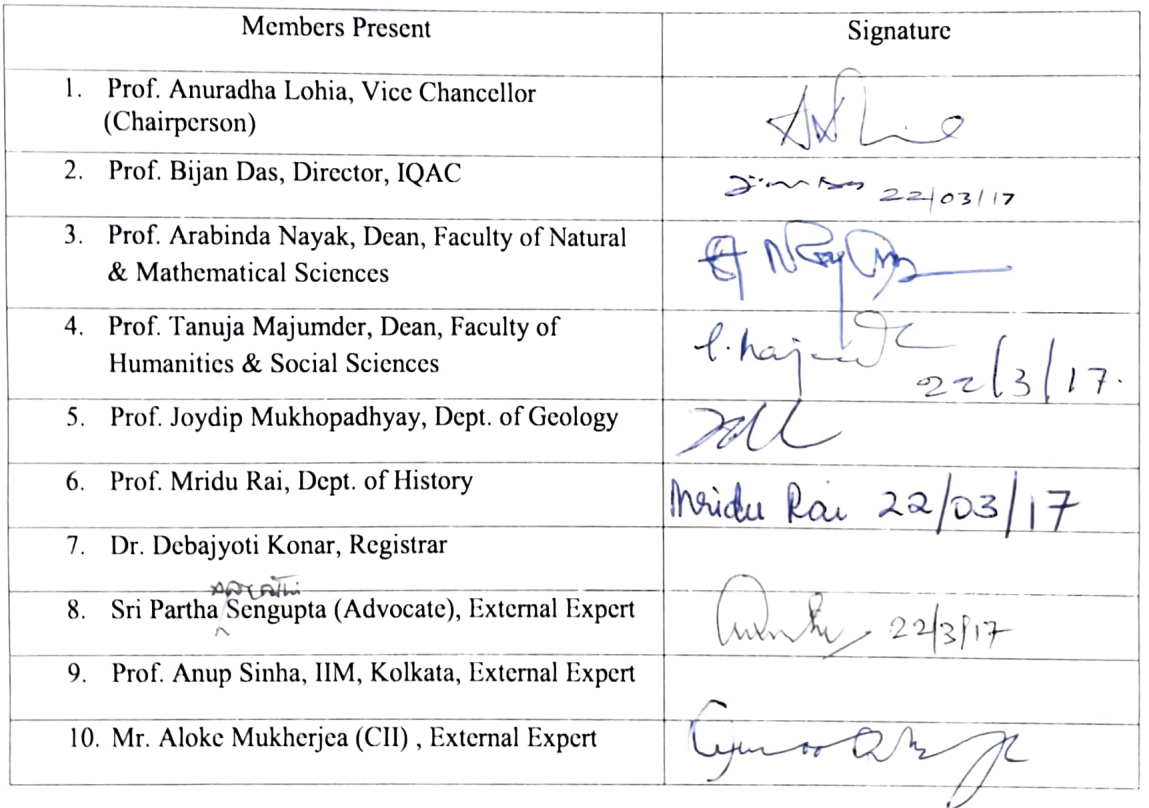 Members Present
Signature
1. Prof. Anuradha Lohia, Vice Chancellor
(Chairperson)
2. Prof. Bijan Das, Director, IQAC
22/03/17
3. Prof. Arabinda Nayak, Dean, Faculty of Natural
& Mathematical Sciences
4. Prof. Tanuja Majumder, Dean, Faculty of
Humanities & Social Sciences
22/3/17.
5. Prof. Joydip Mukhopadhyay, Dept. of Geology
6. Prof. Mridu Rai, Dept. of History
Mridu Rai 22/03/17
7. Dr. Debajyoti Konar, Registrar
8. Sri Partha Sengupta (Advocate), External Expert
22/3/17
9. Prof. Anup Sinha, IIM, Kolkata, External Expert
10. Mr. Aloke Mukherjea (CII) , External Expert